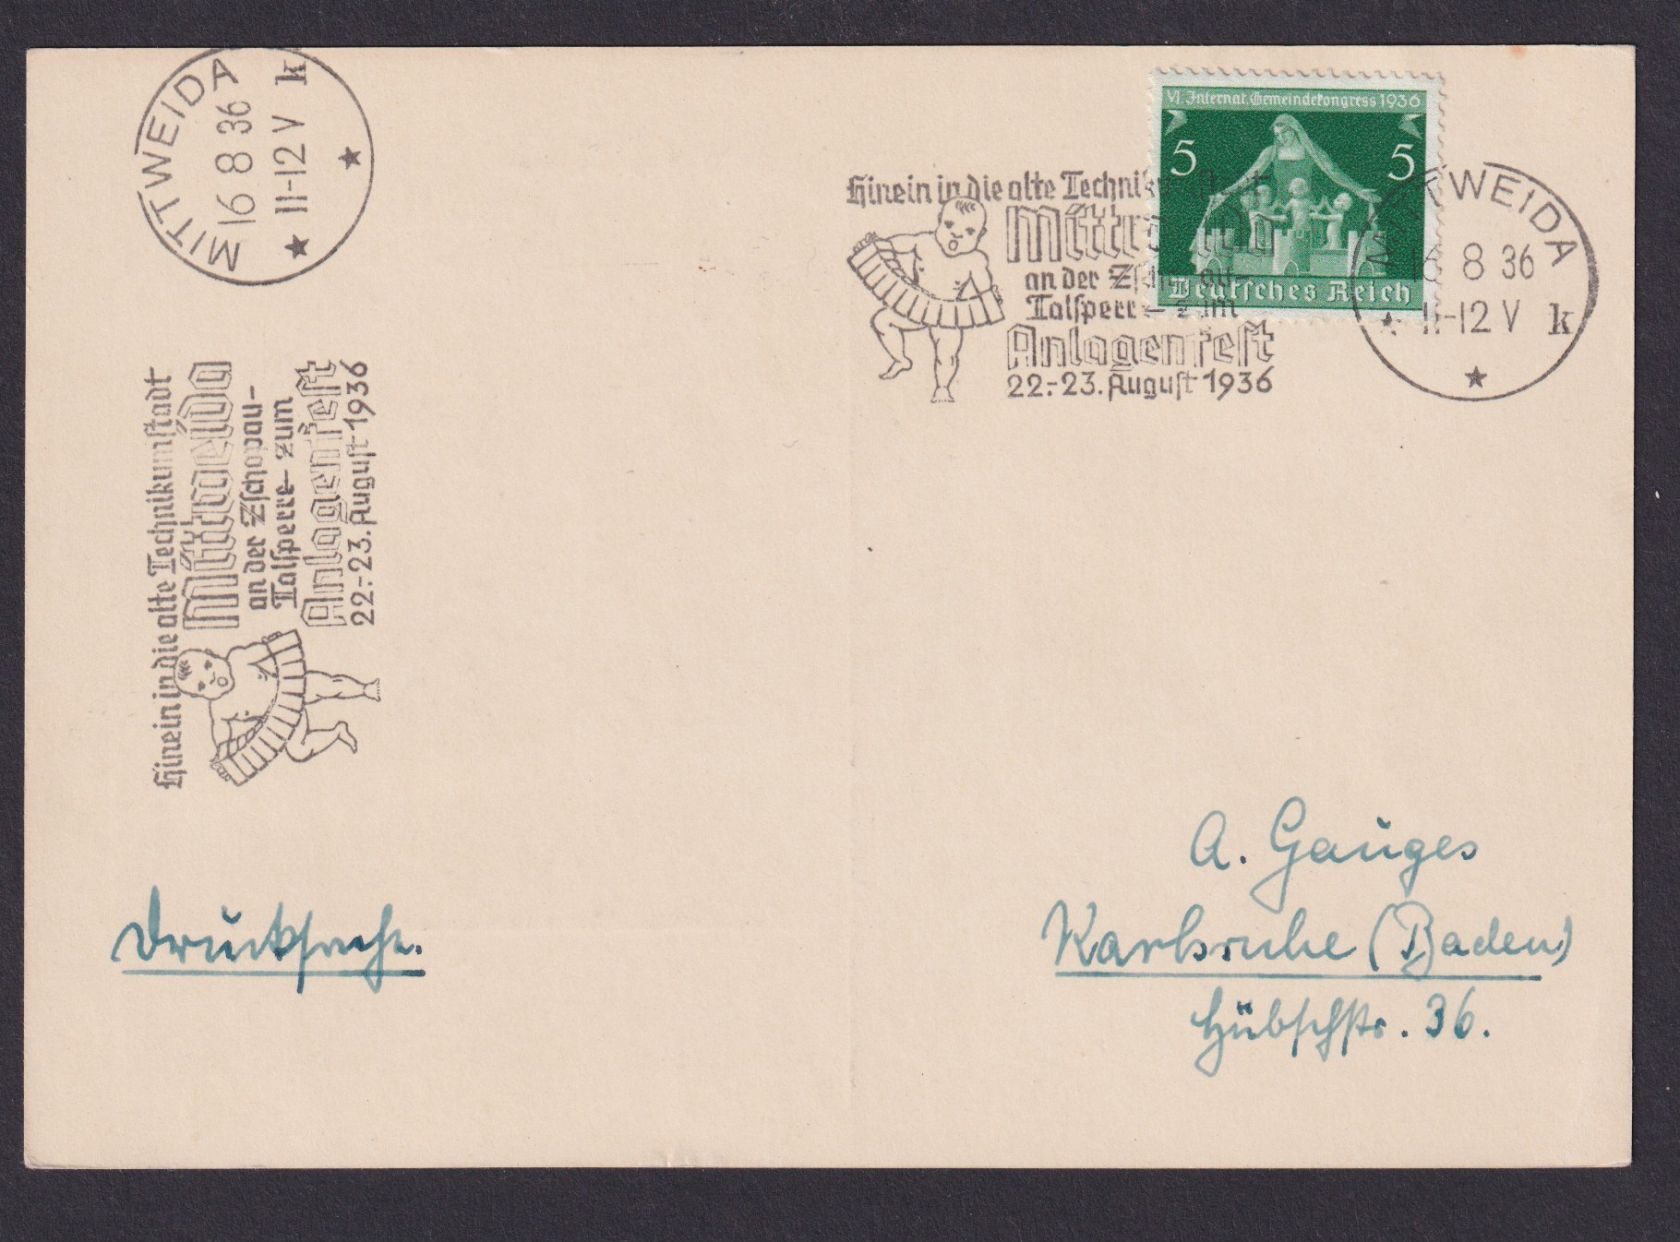 MITTWEIDA
16 8 36
11-12 V k
Hinein in die alte Technikumstadt
Mittweida
an der Zschopau-
Talsperre - zum
Anlagenfest
22.-23. August 1936
VI. Internat. Gemeindekongress 1936
5 5
Deutsches Reich
Hinein in die alte Technikumstadt
Mittweida
an der Zschopau-
Talsperre - zum
Anlagenfest
22.-23. August 1936
MITTWEIDA
16 8 36
11-12 V k
Drucksache.
A. Gauges
Karlsruhe (Baden)
Hübschstr. 36.